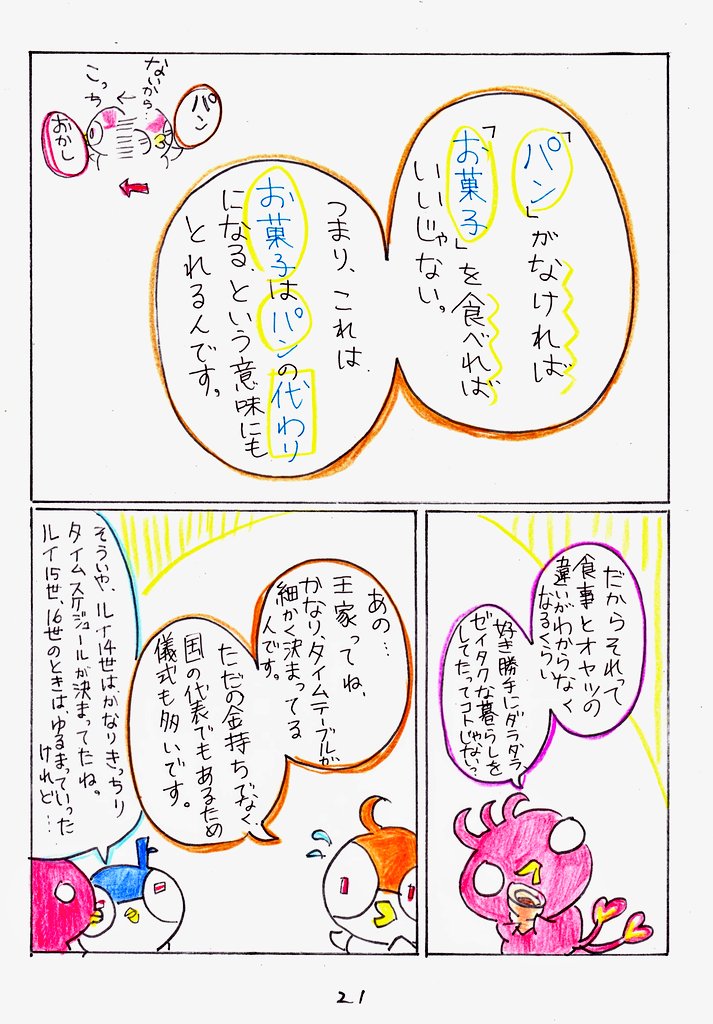 「パン」がなければ
「お菓子」を食べれば
いいじゃない。
つまり、これは
お菓子はパンの代わり
になる、という意味にも
とれるんです。
パン
ないから
こっち
おかし
だからそれって
食事とオヤツの
違いがわからなく
なるくらい
好き勝手にダラダラ
ゼイタクな暮らしを
してたってコトじゃないっ
あの…
王家ってね、
かなり、タイムテーブルが
細かく決まってる
んです。
ただの金持ちでなく、
国の代表でもあるため
儀式も多いです。
そういや、ルイ14世はかなりきっちり
タイムスケジュールが決まってたね。
ルイ15世、16世のときは、ゆるまっていった
けれど…
21